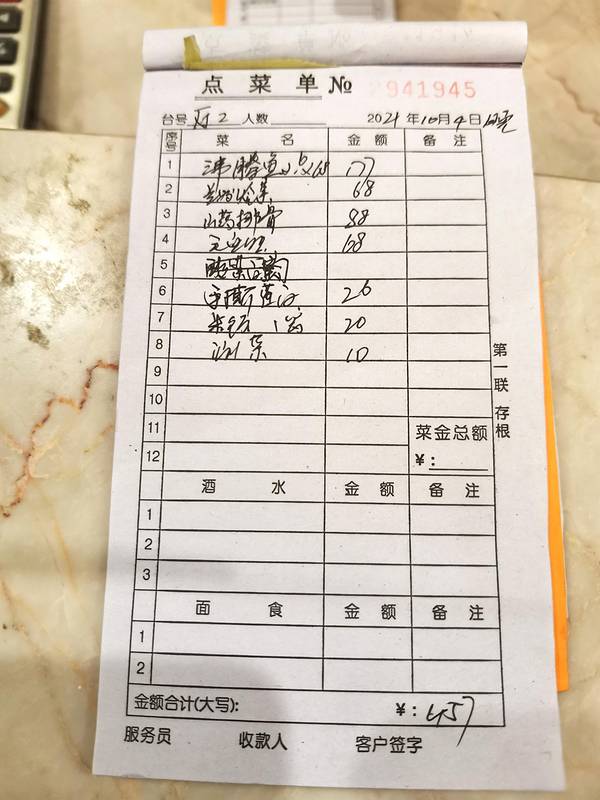 点菜单 № 2941945
台号 厅2 人数 2021年10月4日
序号 菜名 金额 备注
1 沸腾鱼 177
2 68
3 山药排骨 88
4 68
5
6 手撕 26
7 米饭 20
8 泡菜 10
9
10
11 菜金总额
12 ¥:
第一联 存根
酒水 金额 备注
1
2
3
面食 金额 备注
1
2
金额合计(大写): ¥: 457
服务员 收款人 客户签字